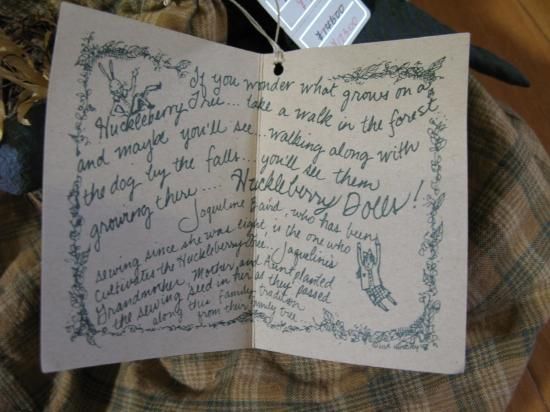 If you wonder what grows on a
Huckleberry Tree... take a walk in the forest
and maybe you'll see... walking along with
the dog by the falls... you'll see them
growing there.... Huckleberry Dolls!
Jaqueline Baird, who has been
sewing since she was eight, is the one who
cultivates the Huckleberry Tree... Jaqueline's
Grandmother, Mother and Aunt planted
the sewing seed in her as they passed
along this family tradition
from their family tree...